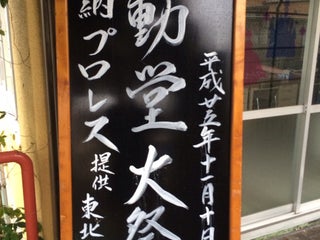 平成廿五年十一月十日
動堂大祭
納プロレス提供東北